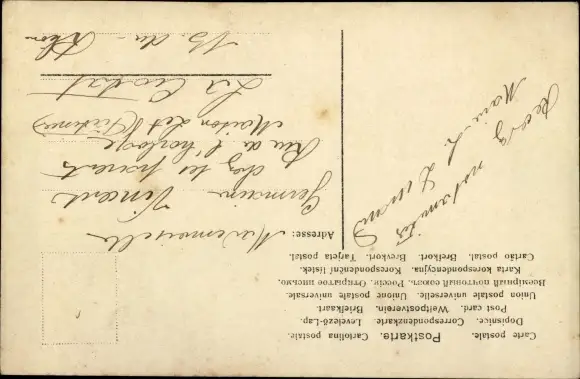 Carte postale. Postkarte. Cartolina postale.
Dopisnice. Correspondenzkarte. Levelező-Lap.
Post card. Weltpostverein. Briefkaart.
Union postale universelle. Unione postale universale
Всемірный почтовый союзъ. Россія. Открытое письмо.
Karta korespondencyjna. Korespondenční listek.
Cartão postal. Brefkort. Brevkort. Tarjeta postal.
Adresse:
Mademoiselle
Germaine Vincent
chez ses parents
Rue de l'horloge
Maison
La Ciotat
B. du - Rhone
Marie